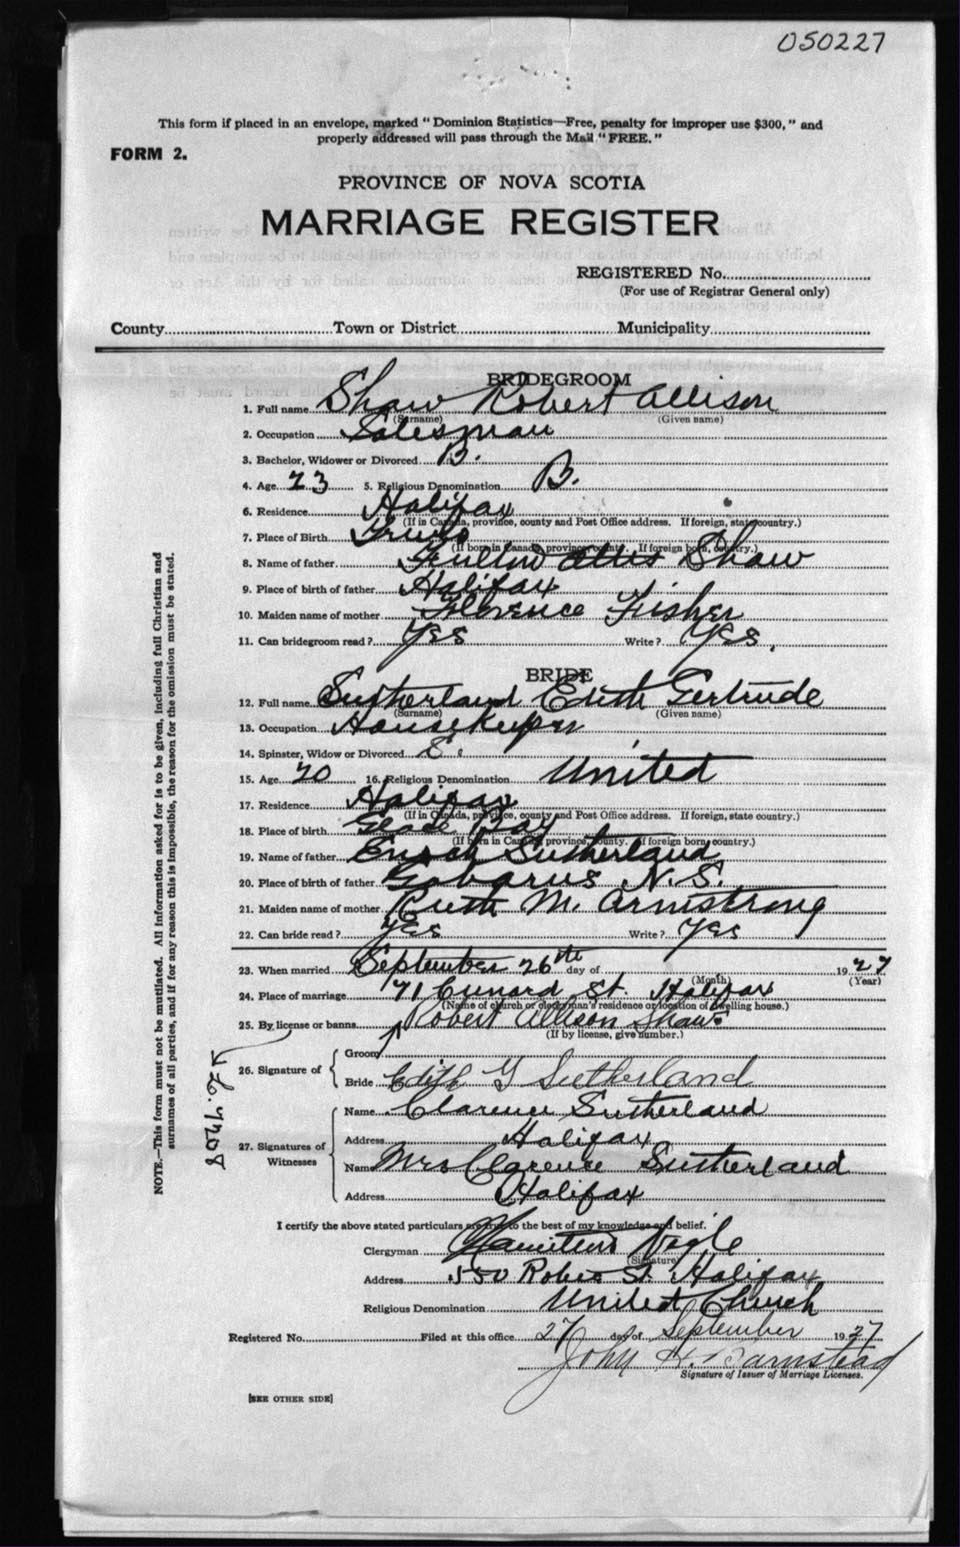 050227
This form if placed in an envelope, marked "Dominion Statistics—Free, penalty for improper use $300," and
properly addressed will pass through the Mail "FREE."
FORM 2.
PROVINCE OF NOVA SCOTIA
MARRIAGE REGISTER
REGISTERED No.
(For use of Registrar General only)
County Town or District Municipality
BRIDEGROOM
1. Full name Shaw Robert Allison
(Surname) (Given name)
2. Occupation Salesman
3. Bachelor, Widower or Divorced B.
4. Age 23 5. Religious Denomination B.
6. Residence Halifax
(If in Canada, province, county and Post Office address. If foreign, state country.)
7. Place of Birth Truro
(If born in Canada, province, county. If foreign born, country.)
8. Name of father Fulton Otis Shaw
9. Place of birth of father Halifax
10. Maiden name of mother Florence Fisher
11. Can bridegroom read? Yes Write? Yes.
BRIDE
12. Full name Sutherland Edith Gertrude
(Surname) (Given name)
13. Occupation Housekeeper
14. Spinster, Widow or Divorced S.
15. Age 20 16. Religious Denomination United
17. Residence Halifax
(If in Canada, province, county and Post Office address. If foreign, state country.)
18. Place of birth Glace Bay
(If born in Canada, province, county. If foreign born, country.)
19. Name of father Enoch Sutherland
20. Place of birth of father Gabarus N.S.
21. Maiden name of mother Ruth M. Armstrong
22. Can bride read? Yes Write? Yes
23. When married September 26th day of 1927
(Month) (Year)
24. Place of marriage 71 Cunard St. Halifax
(Name of church or clergyman's residence or location of dwelling house.)
25. By license or banns
(If by license, give number.)
L. 7208
26. Signature of
Groom Robert Allison Shaw
Bride Edith G Sutherland
27. Signatures of Witnesses
Name Clarence Sutherland
Address Halifax
Name Mrs Clarence Sutherland
Address Halifax
I certify the above stated particulars are true to the best of my knowledge and belief.
Clergyman
(Signature)
Address 550 Robie St. Halifax
Religious Denomination United Church
Registered No. Filed at this office 27 day of September 1927
John H. Barnstead
Signature of Issuer of Marriage Licenses.
[SEE OTHER SIDE]
NOTE.—This form must not be mutilated. All information asked for is to be given, including full Christian and
surnames of all parties, and if for any reason this is impossible, the reason for the omission must be stated.